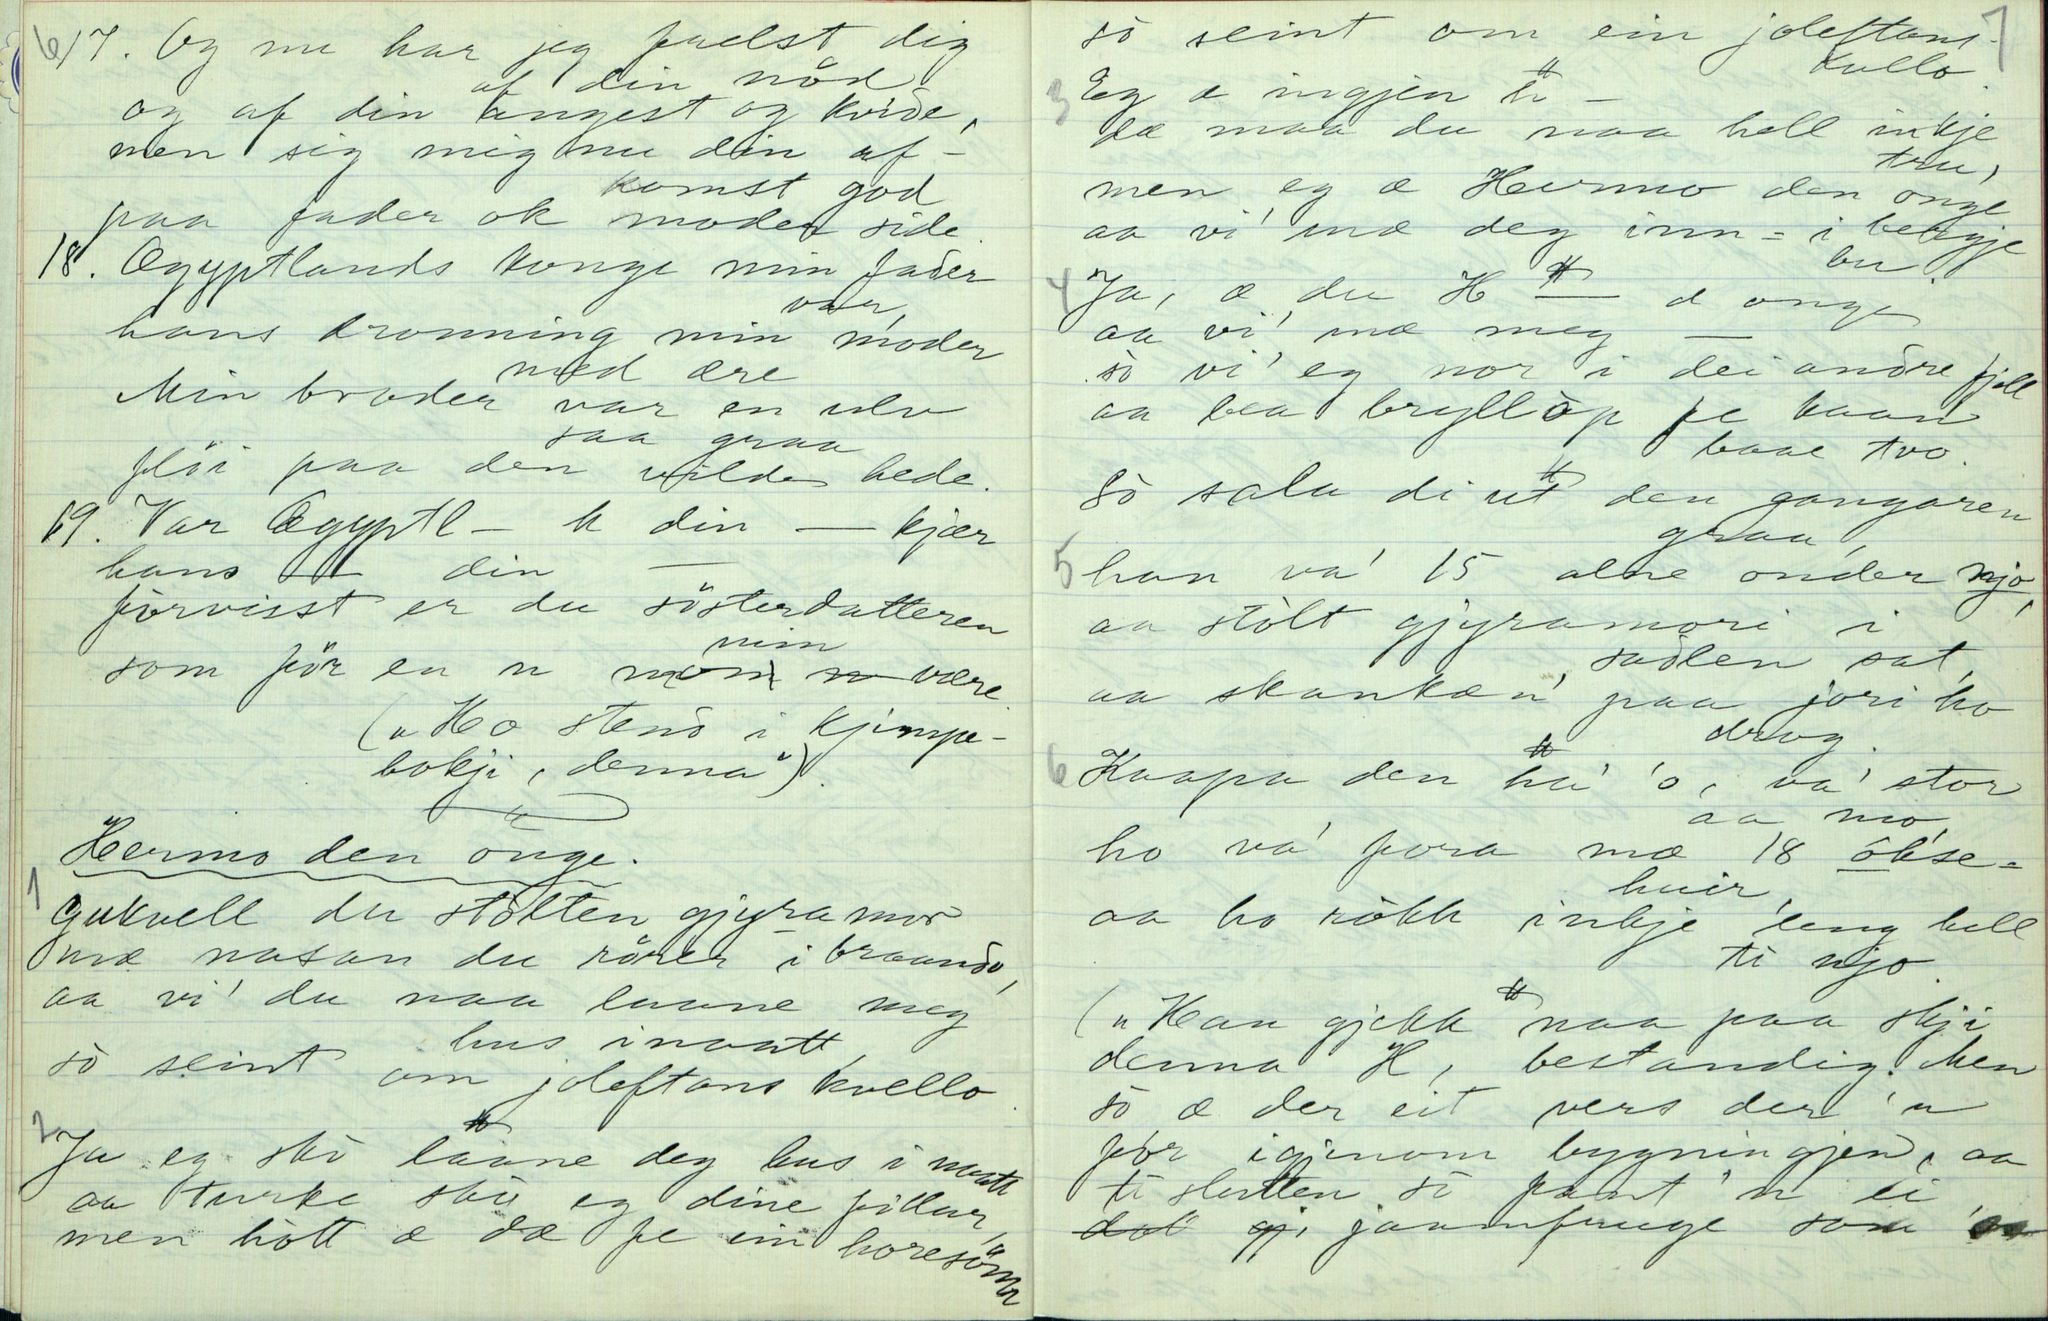 6
17. Og nu har jeg frelst dig
af din nöd
og af din angest og kvide,
men sig mig nu din af-
komst god
paa fader ok moder side.
18. Ægyptlands konge min fader
var,
hans dronning min moder
med ære
Min broder var en ulv
saa graa
flöi paa den vilde hede.
19. Var Ægyptl — k din — kjær
hans — din —
forvisst er du söster datteren
min
som för en n mon være.
("Ho stend i kjempe-
bokji, denna").
Hermo den onge.
1
Gukvell du stolten gjyramor
mæ nasan du rörer i brando,
aa vi' du naa laane meg
hus i naatt,
so seint om joleftans kvello.
2
Ja eg sko laane deg hus i naatt
aa turke sko eg dine fillar,
men hott æ dæ fe ein horesönn
7
so seint om ein joleftans-
kvello.
3 Eg æ ingjen h —
dæ maa du naa hell inkje
tru,
men eg æ Hermo den onge
aa vi' mæ deg inn = i beggje
bu.
4 Ja, æ du H — d onge
aa vi' mæ meg —
so vi' eg nor i dei andre fjell
aa bea bryllop fe kaan
baae tvo.
So sala di ut den gangaren
graa,
5 han va' 15 alne onder njo,
aa stolt gjyramori i
sadlen sat,
aa skankæn' paa jori ho
drog.
6 Kaapa den ha' 'o, va' stor
aa mo
ho va' fora mæ 18 okse =
huir,
aa ho rökk inkje leng hell
ti njo.
("Han gjekk naa paa skji
denna H, bestandig. Men
so æ der eit vers der 'n
for igjenom bygningjen, aa
ti slutten so fant 'n ei
jaamfruge som